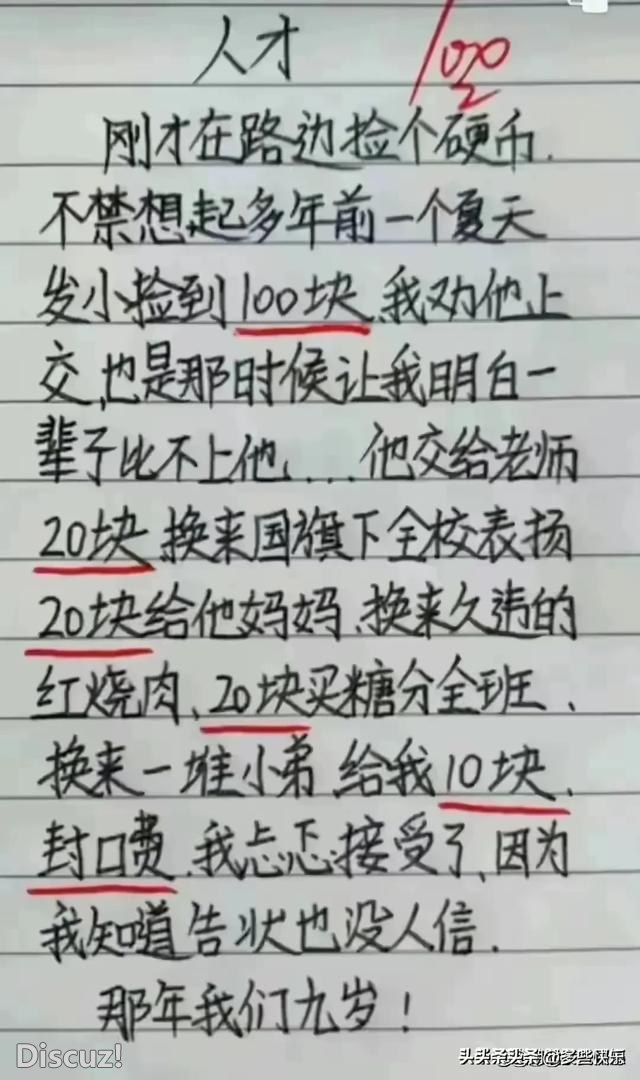 人才
100
刚才在路边捡个硬币.
不禁想起多年前一个夏天
发小捡到100块.我劝他上
交,也是那时候让我明白一
辈子比不上他....他交给老师
20块换来国旗下全校表扬
20块给他妈妈、换来久违的
红烧肉、20块买糖分全班、
换来一堆小弟给我10块.
封口费.我忐忑接受了,因为
我知道告状也没人信.
那年我们九岁!
Discuz!